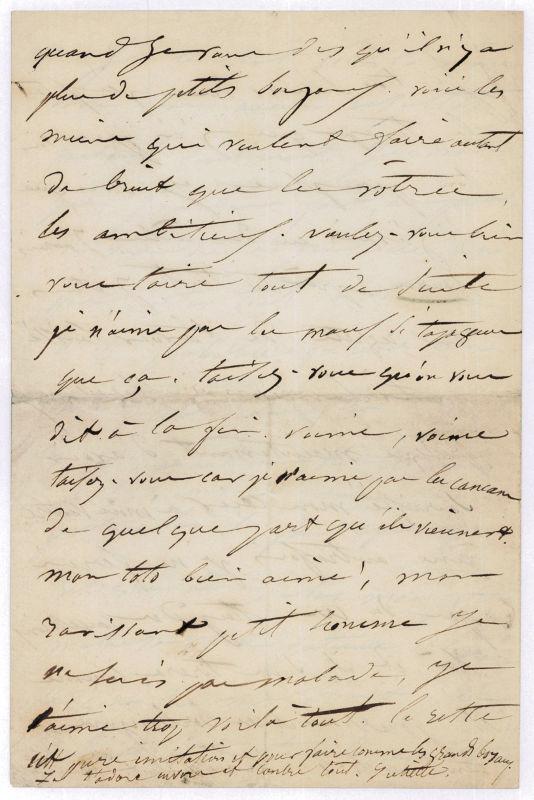 quand je vous dis qu'il n'y a
plus de petits boyaux. voici les
miens qui veulent faire autant
de bruit que les vôtres
les ambitieux. voulez-vous bien
vous taire tout de suite
je n'aime pas les maux si tapageurs
que ça. taisez-vous qu'on vous
dit à la fin.
taisez-vous car je n'aime pas les cancans
de quelque part qu'ils viennent.
mon toto bien aimé, mon
ravissant petit homme je
ne suis pas malade, je
t'aime trop voilà tout. le reste
est pure imitation et pour faire comme les grands boyaux.
Je t'adore envers et contre tout. Juliette